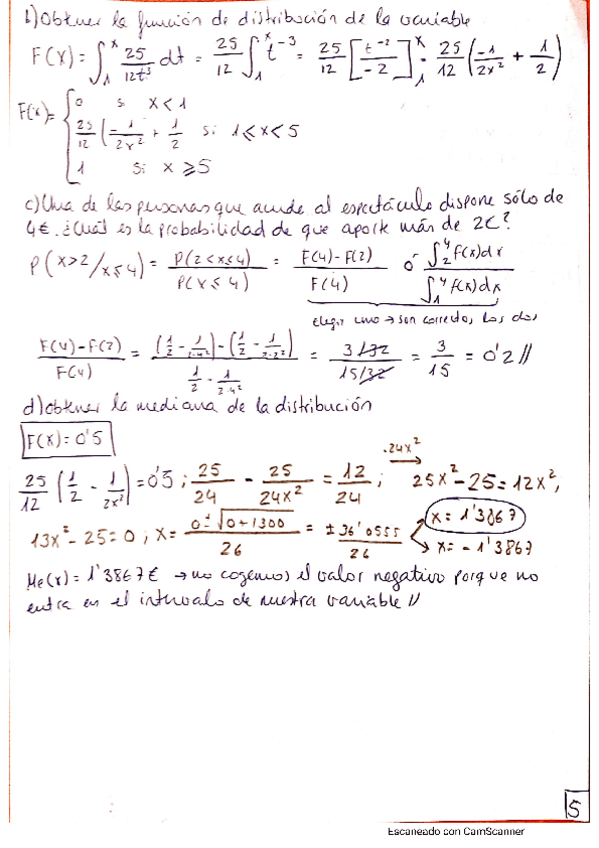 b) Obtener la función de distribución de la variable
F(x) = ∫₁ˣ 25/12t³ dt = 25/12 ∫₁ˣ t⁻³ = 25/12 [t⁻²/-2]₁ˣ = 25/12 (-1/2x² + 1/2)
F(x) = { 0 si x < 1
25/12 (-1/2x² + 1/2 si 1 ≤ x < 5
1 si x ≥ 5
c) Una de las personas que acude al espectáculo dispone sólo de
4€. ¿Cuál es la probabilidad de que aporte más de 2€?
P(x>2/x≤4) = P(2<x≤4)/P(x≤4) = F(4)-F(2)/F(4) ó ∫₂⁴ f(x)dx/∫₁⁴ f(x)dx
elegir uno → son correctos los dos
F(4)-F(2)/F(4) = (1/2 - 1/2·4²) - (1/2 - 1/2·2²)/1/2 - 1/2·4² = 3/32/15/32 = 3/15 = 0'2 //
d) Obtener la mediana de la distribución
F(x) = 0'5
25/12 (1/2 - 1/2x²) = 0'5 ; 25/24 - 25/24x² = 12/24 ; ·24x² → 25x² - 25 = 12x² ;
13x² - 25 = 0 ; x = 0 ± √0+1300/26 = ± 36'0555/26 → x = 1'3867
→ x = - 1'3867
Me(x) = 1'3867€ → no cogemos el valor negativo porque no
entra en el intervalo de nuestra variable //
5
Escaneado con CamScanner